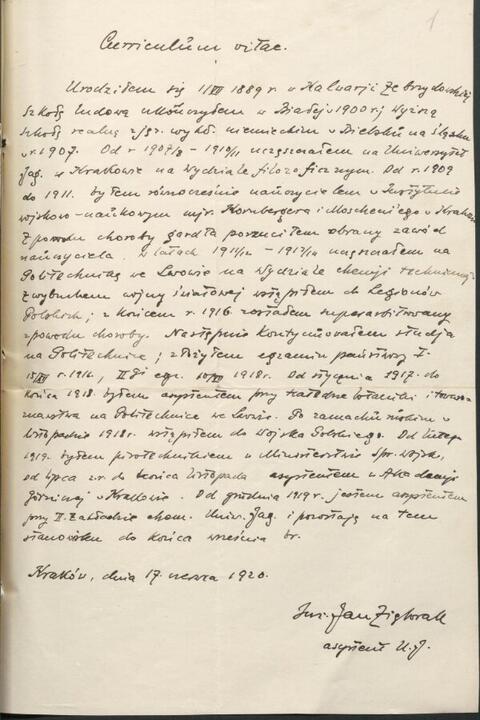 1
Curriculum vitae.
Urodziłem się 11/VII 1889 r. w Kalwarji Zebrzydowskiej
Szkołę ludową ukończyłem w Białej w 1900 r; wyższą
szkołę realną z językiem wykł. niemieckim w Bielsku na Śląsku
w r. 1907. Od r 1907/8 – 1910/11 uczęszczałem na Uniwersytet
Jag. w Krakowie na Wydziale filozoficznym. Od r. 1909
do 1911. byłem równocześnie nauczycielem w Instytucie
wojskowo-naukowym mjr. Kornbergera i Moscheni'ego w Krakowie
Z powodu choroby gardła porzuciłem obrany zawód
nauczyciela. W latach 1911/12 – 1913/14 uczęszczałem na
Politechnikę we Lwowie na Wydziale chemji technicznej
Z wybuchem wojny światowej wstąpiłem do Legjonów
Polskich; z końcem r. 1916 zostałem superarbitrowany
z powodu choroby. Następnie kontynuowałem studja
na Politechnice; złożyłem egzamin państwowy I.
r. 1916, II gi egz. 1918 r. Od stycznia 1917. do
końca 1918. byłem asystentem przy katedrze botaniki i towaro-
znawstwa na Politechnice we Lwowie. Po zamachu ruskim w
listopadzie 1918 r. wstąpiłem do Wojska Polskiego. Od lutego
1919. byłem pirotechnikiem w Ministerstwie Spr. Wojsk.
od lipca z. r. do końca listopada asystentem w Akademji
górniczej w Krakowie. Od grudnia 1919 r. jestem asystentem
przy II. Zakładzie chem. Uniw. Jag. i pozostaję na tem
stanowisku do końca września br.
Kraków, dnia 17. czerwca 1920.
Inż. Jan
asystent U. J.